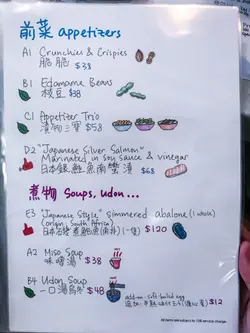 前菜 appetizers
A1 Crunchies & Crispies
脆脆 $38
B1 Edamame Beans
枝豆 $38
C1 Appetizer Trio
漬物三寶 $58
D2 "Japanese Silver Salmon"
Marinated in soy sauce & vinegar
日本銀鮭魚南蠻漬 $68
煮物 Soups, udon...
E3 "Japanese Style" simmered abalone (1 whole)
(origin: South Africa)
$120
A2 Miso Soup
味噌湯 $38
B4 Udon Soup
一口湯烏冬 $48
add-on: soft-boiled egg
$12
All items are subject to 10% service charge.